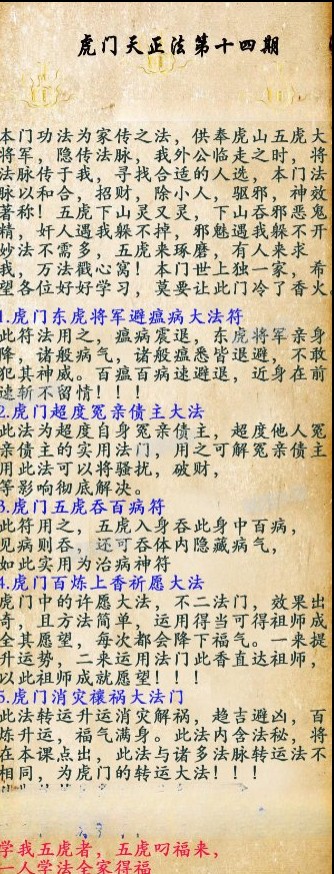 虎门天正法第十四期
本门功法为家传之法，供奉虎山五虎大
将军，隐传法脉，我外公临走之时，将
法脉传于我，寻找合适的人选，本门法
脉以和合，招财，除小人，驱邪，神效
著称！五虎下山灵又灵，下山吞邪恶鬼
精，奸人遇我躲不掉，邪魅遇我躲不开
妙法不需多，五虎来琢磨，有人来求
我，万法戳心窝！本门世上独一家，希
望各位好好学习，莫要让此门冷了香火
1.虎门东虎将军避瘟病大法符
此符法用之，瘟病震退，东虎将军亲身
降，诸般病气，诸般瘟悉皆退避，不敢
犯其神威。百瘟百病速避退，近身在前
速斩不留情！！！
2.虎门超度冤亲债主大法
此法为超度自身冤亲债主，超度他人冤
亲债主的实用法门，用之可解冤亲债主
用此法可以将骚扰，破财，
等影响彻底解决。
3.虎门五虎吞百病符
此符用之，五虎入身吞此身中百病，
见病则吞，还可吞体内隐藏病气，
如此实用为治病神符
4.虎门百炼上香祈愿大法
虎门中的许愿大法，不二法门，效果出
奇，且方法简单，运用得当可得祖师成
全其愿望，每次都会降下福气。一来提
升运势，二来运用法门此香直达祖师，
以此祖师成就愿望！！！
5.虎门消灾禳祸大法门
此法转运升运消灾解祸，趋吉避凶，百
炼升运，福气满身。此法内含法秘，将
在本课点出，此法与诸多法脉转运法不
相同，为虎门的转运大法！！！
学我五虎者，五虎叼福来，
一人学法全家得福